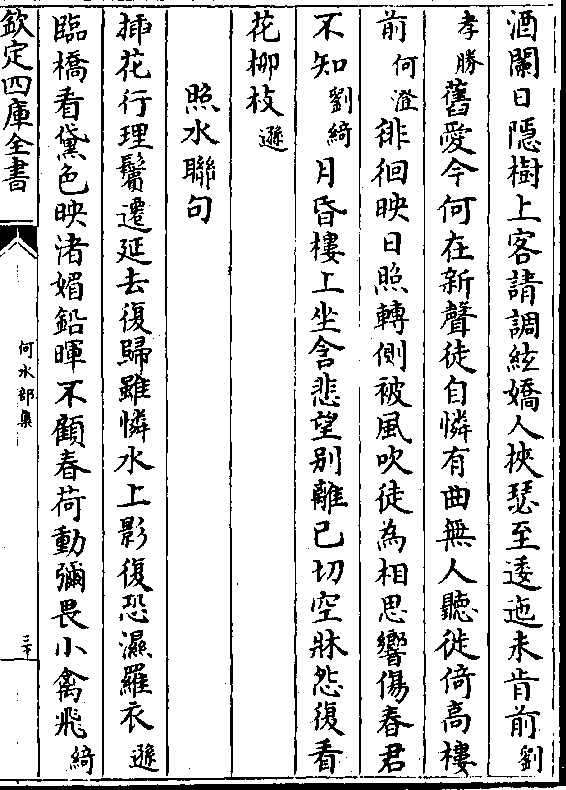 酒闌日隱樹上客請調絃嬌人挾瑟至逶迤未肯前劉
孝勝舊愛今何在新聲徒自憐有曲無人聽徙倚高樓
前何澄徘徊映日照轉側被風吹徒為相思響傷春君
不知劉綺月昏樓上坐含悲望别離已切空牀怨復看
花柳枝遜
照水聯句
揷花行理鬢遷延去復歸雖憐水上影復恐濕羅衣遜
臨橋看黛色映渚媚鉛暉不顧春荷動彌畏小禽飛綺
欽定四庫全書
何水部集
三十